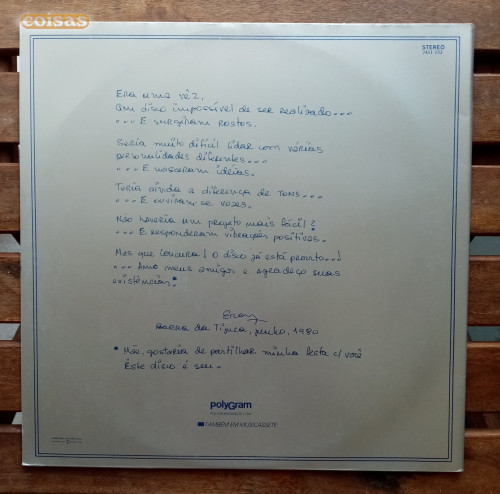 coisas
STEREO
2451 152
Era uma vêz,
Um disco impossível de ser realizado...
... E surgiram rostos.
Seria muito difícil lidar com várias
personalidades diferentes...
... E nasceram idéias.
Teria ainda a diferença de TONS...
... E ouviram-se vozes.
Não haveria um projeto mais fácil?
... E responderam vibrações positivas.
Mas que loucura! O disco já está pronto...!
... Amo meus amigos e agradeço suas
existências.*
Barra da Tijuca, junho, 1980
* Mãe, gostaria de partilhar minha festa c/ você
Este disco é seu.
polyGram
TAMBÉM EM MUSICASSETE